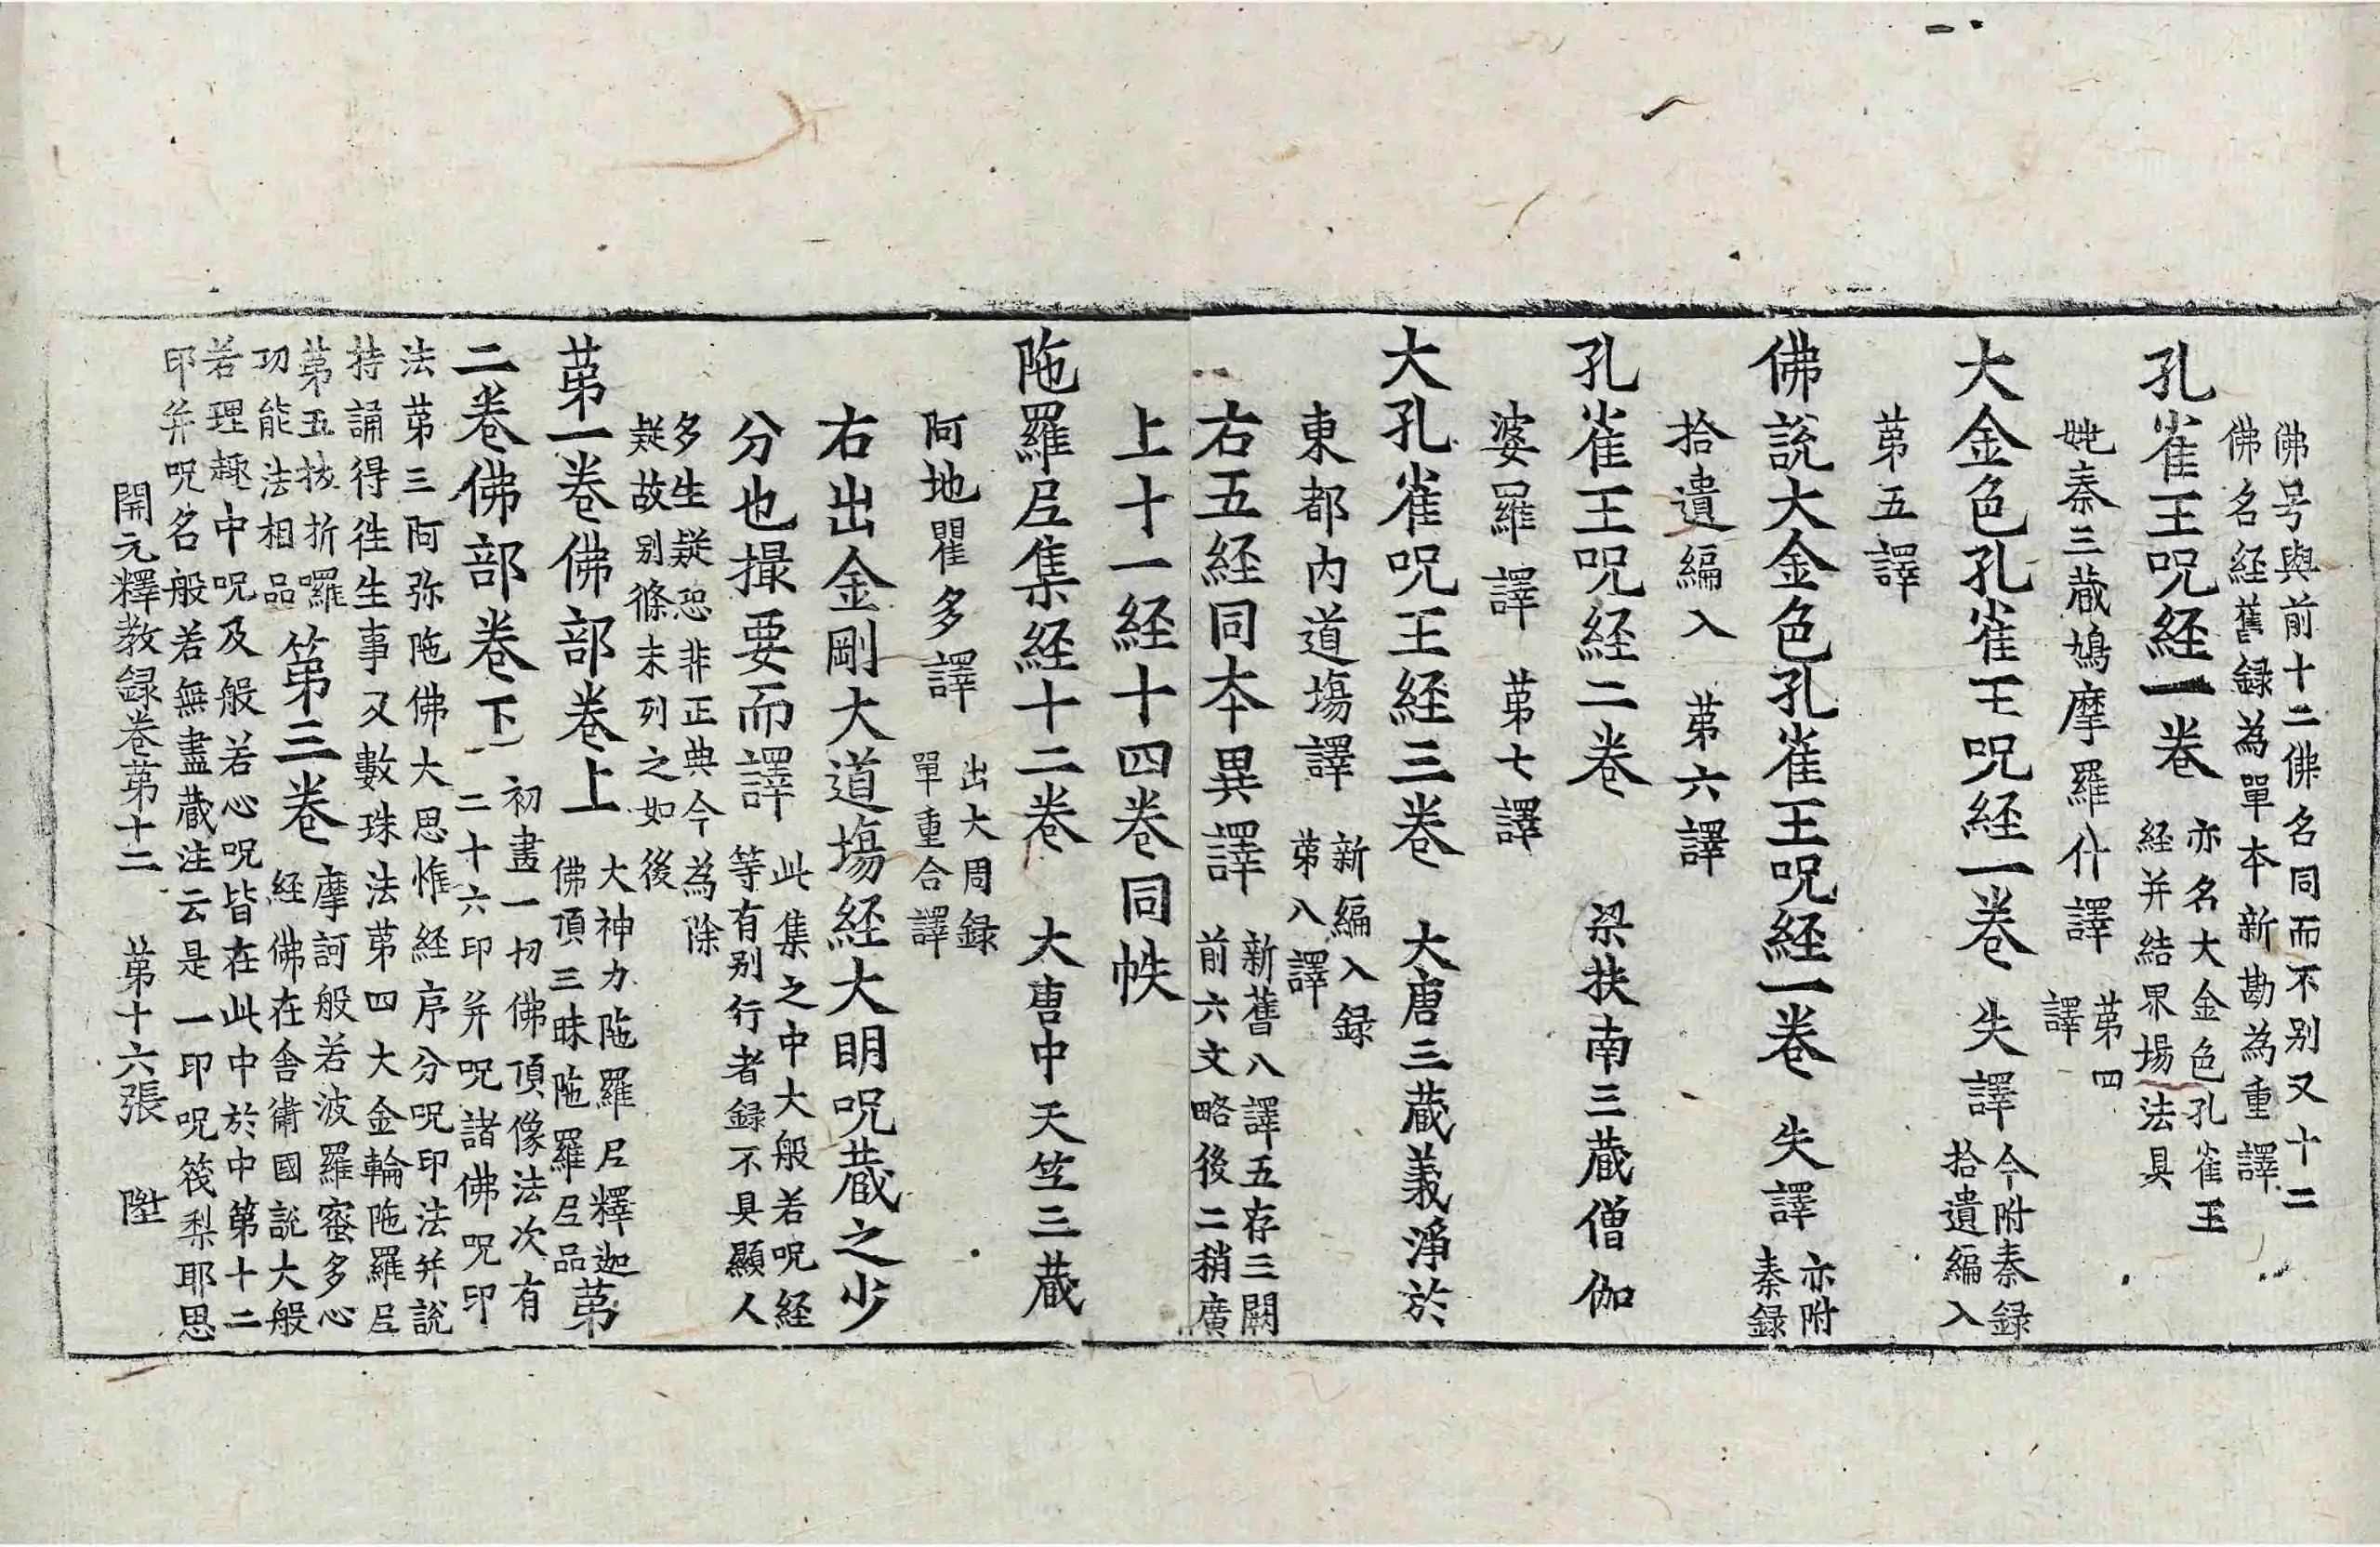 佛号與前十二佛名同而不别又十二
佛名経舊録為單夲新勘為重譯
孔雀王呪経一卷 亦名大金色孔雀王
経并結界場法具
姚秦三蔵鳩摩羅什譯 苐四
譯
大金色孔雀王呪経一卷 失譯 今附秦録
拾遺編入
苐五譯
佛說大金色孔雀王呪経一卷 失譯 亦附
秦録
拾遺編入 苐六譯
孔雀王呪経二卷 梁扶南三蔵僧伽
婆羅譯 苐七譯
大孔雀呪王経三卷 大唐三蔵義淨於
東都內道塲譯 新編入録
苐八譯
右五経同夲異譯 新舊八譯五存三闕
前六文略後二稍廣
上十一経十四卷同帙
陁羅尼集経十二卷 大唐中天竺三蔵
阿地瞿多譯 出大周録
單重合譯
右出金剛大道塲経大明呪蔵之少
分也撮要而譯 此集之中大般若呪経
等有别行者録不具顯人
多生疑恐非正典今為除
疑故别條末列之如後
苐一卷佛部卷上 大神力陁羅尼釋迦
佛頂三昧陁羅尼品 苐
二卷佛部卷下 初畫一切佛頂像法次有
二十六印并呪諸佛呪印
法苐三阿弥陁佛大思惟経序分呪印法并說
持誦得徃生事又數珠法苐四大金輪陁羅尼
苐五拔折囉
功能法相品 第三卷 摩訶般若波羅蜜多心
経佛在舍衛國說大般
若理趣中呪及般若心呪皆在此中於中第十二
印并呪名般若無盡蔵注云是一印呪筏梨耶思
開元釋教録卷苐十二 苐十六張 陞